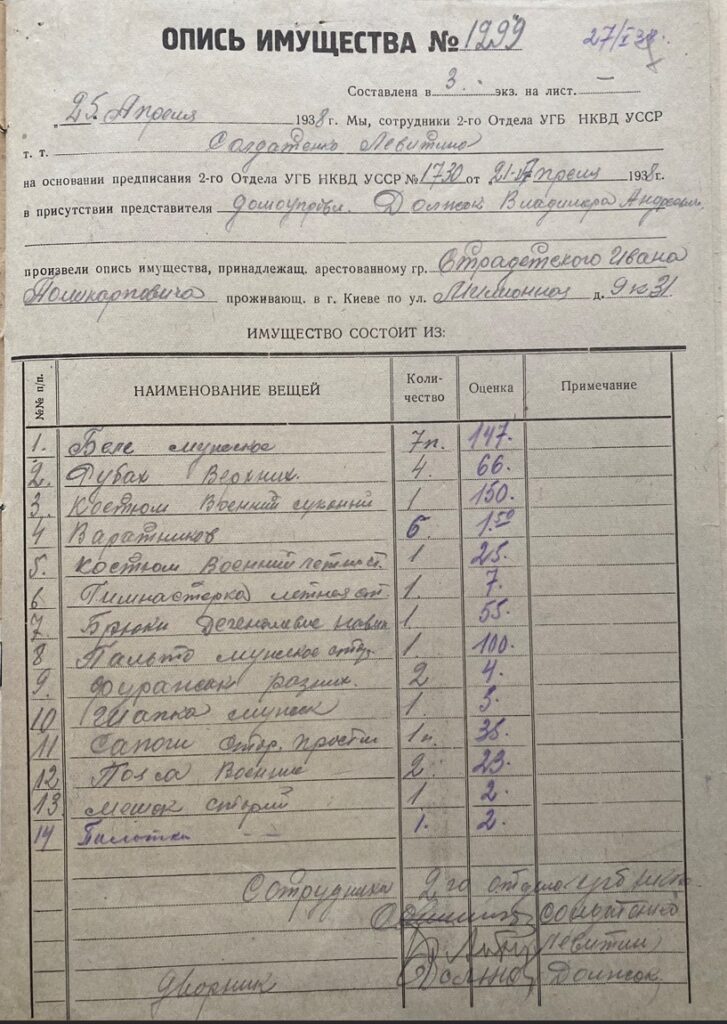 ОПИСЬ ИМУЩЕСТВА № 1299
27/I 38
Составлена в 3 экз. на лист. —
„25 Апреля 1938 г. Мы, сотрудники 2-го Отдела УГБ НКВД УССР
т. т. Солдатенко Левитина
на основании предписания 2-го Отдела УГБ НКВД УССР № 1730 от 21 Апреля 1938 г.
в присутствии представителя домоуправл. Должок Владимира
произвели опись имущества, принадлежащ. арестованному гр. Страдетского Ивана
Поликарповича проживающ. в г. Киеве по ул. д. 9 к 31
ИМУЩЕСТВО СОСТОИТ ИЗ:
№№ п/п. НАИМЕНОВАНИЕ ВЕЩЕЙ Коли-чество Оценка Примечание
1. Беле мужское 7п. 147.
2. Рубах Верхних. 4. 66.
3. Костюм Военний суконий 1 150.
4 Варатников 6. 1.50
5. Костюм Военний 1 25.
6 Гимнастерка летная 1. 7.
7 Брюки 1. 55.
8 Пальто мужское стар. 1. 100.
9. Фуражек разних. 2 4.
10 Шапка мужск 1.
11 Сапоги стар. 1п. 35.
12 Пояса Военние 2. 23.
13. мешок старий 1 2.
14 Пилотка - - 1. 2.
Сотрудники 2го отдела угб
Солдатенко
Левитин
Дворник Должок